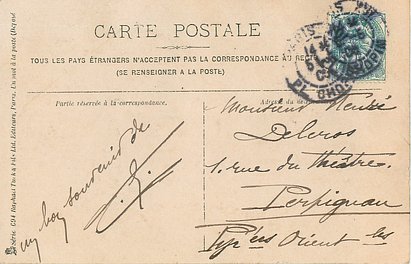 CARTE POSTALE
TOUS LES PAYS ÉTRANGERS N'ACCEPTENT PAS LA CORRESPONDANCE AU RECTO
(SE RENSEIGNER A LA POSTE)
Partie réservée à la correspondance.
Adresse du
Monsieur
Delcros
1. rue du Théâtre
Perpignan
Pyr ées Orient les
bon souvenir de
Raphael Tuck & Fils Ltd, Editeurs, Paris.